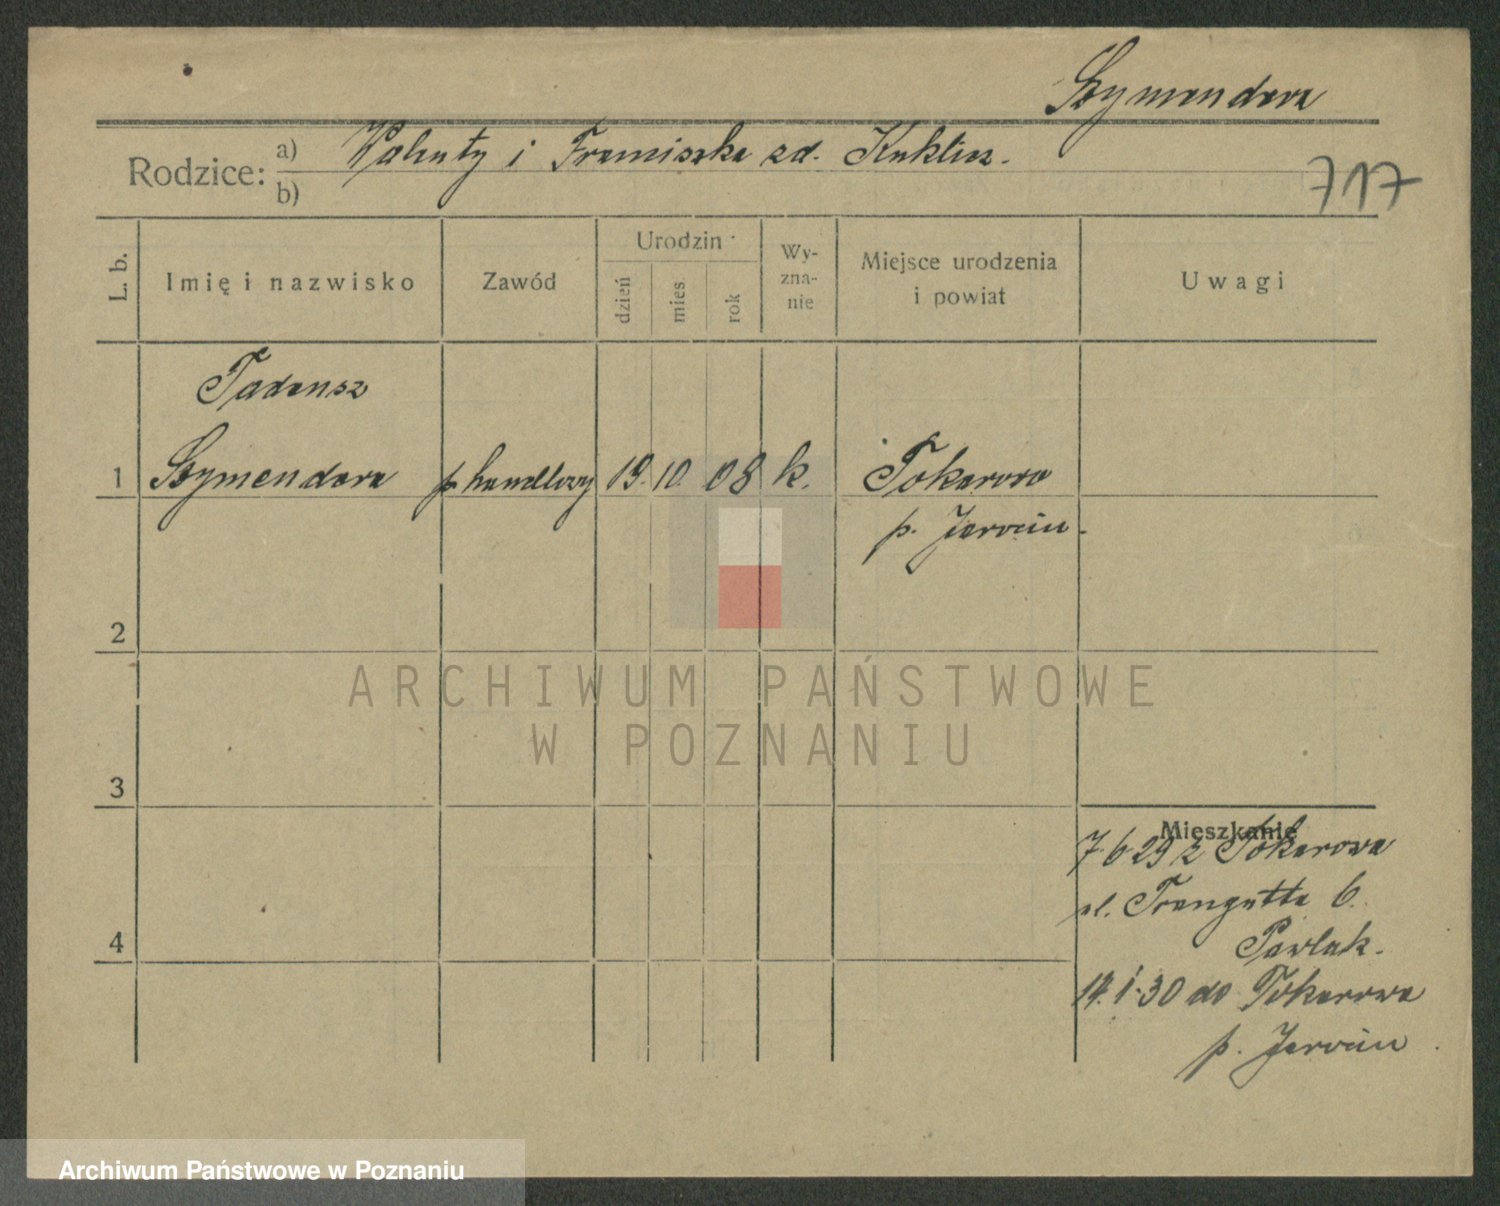 Szymendera
Rodzice: a) Walenty i Franciszka zd. Kuklisz.
b)
717
L. b.
Imię i nazwisko
Zawód
Urodzin
dzień
mies.
rok
Wy-
zna-
nie
Miejsce urodzenia
i powiat
Uwagi
Tadeusz
1 Szymendera p. handlowy 19. 10. 08 k. Tokarowo
p. Jarocin.
2
3
4
Mieszkanie
7.6 29 z Tokarowa
ul. Traugutta 6.
Pawlak.
14.1.30 do Tokarowa
p. Jarocin
ARCHIWUM PAŃSTWOWE
W POZNANIU
Archiwum Państwowe w Poznaniu